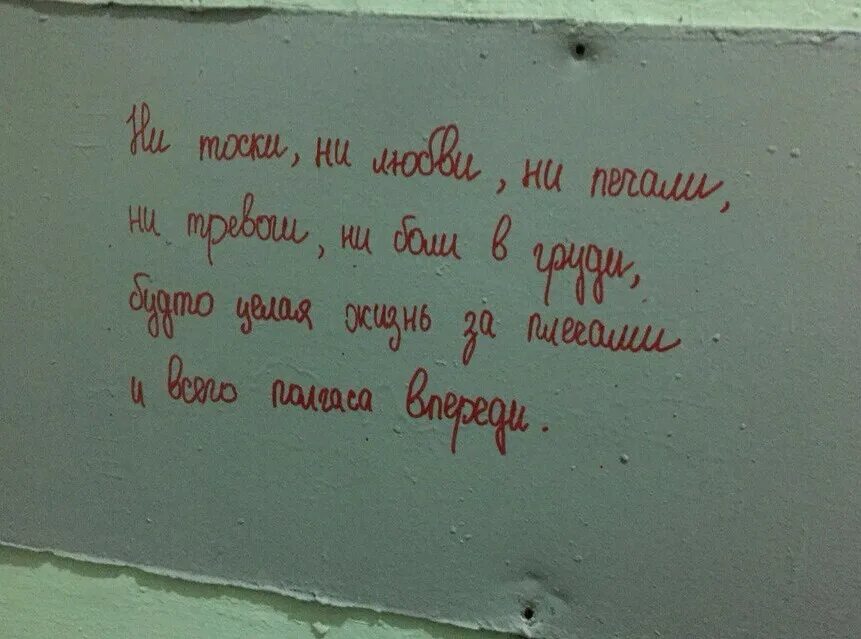 Ни тоски, ни любви, ни печали,
ни тревоги, ни боли в груди,
будто целая жизнь за плечами
и всего полчаса впереди.